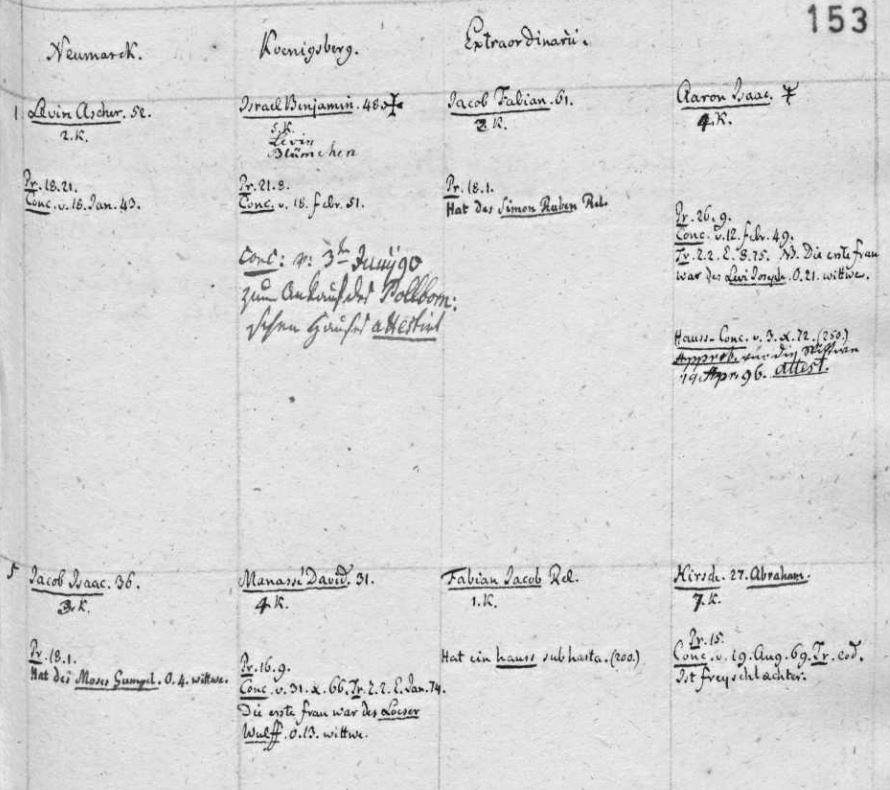 153
Neumarck. Koenigsberg. Extraordinarii.
1
Levin Ascher. 52.
2. K.
Pr. 18.21.
Conc. v. 18. Jan. 43.
Israel Benjamin. 48.
5. K.
Levin
Blümchen
Pr. 21.8.
Conc. v. 18. febr. 51.
Conc: v: 3t Junÿ 90
zum Ankauf des Pollbom:
schen Hauses attestirt
Jacob Fabian. 61.
K.
Pr. 18.1.
Hat des Simon Ruben Rel.
Aaron Isaac.
4. K.
Pr. 26.9.
Conc. v. 12. febr. 49.
Tr. 2.2. E. 8.75. N. Die erste frau
war des Levi Joseph. O.21. wittwe.
Hauss-Conc. v. 3. x. 72. (250.)
Approb. für die Wittwe
19 Apr. 96. attest.
5
Jacob Isaac. 36.
3. K.
Pr. 18.1.
Hat des Moses Gumpel. O.4. wittwe.
Manasse David. 31.
4. K.
Pr. 16.9.
Conc. v. 31. x. 66. Tr. 2.2. E. Jan. 74.
Die erste frau war des Loeser
Wulff. O.13. wittwe.
Fabian Jacob Rel.
1. K.
Hat ein hauss sub hasta. (200.)
Hirsch. 27. Abraham.
7. K.
Pr. 15.
Conc. v. 29. Aug. 69. Tr. eod.
Ist freyschlachter.